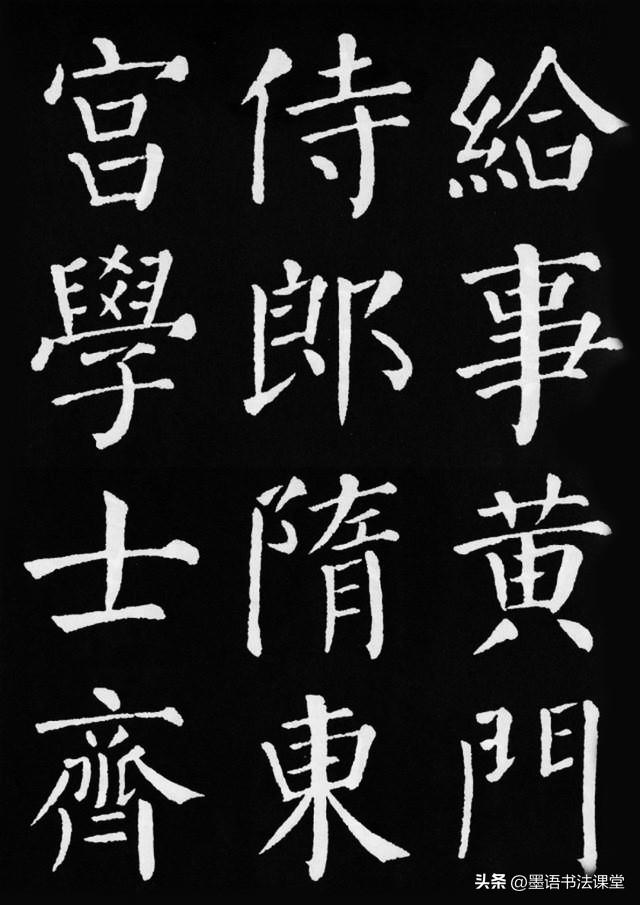 給事黄門
侍郎隋東
宮學士齊
头条@墨语书法课堂